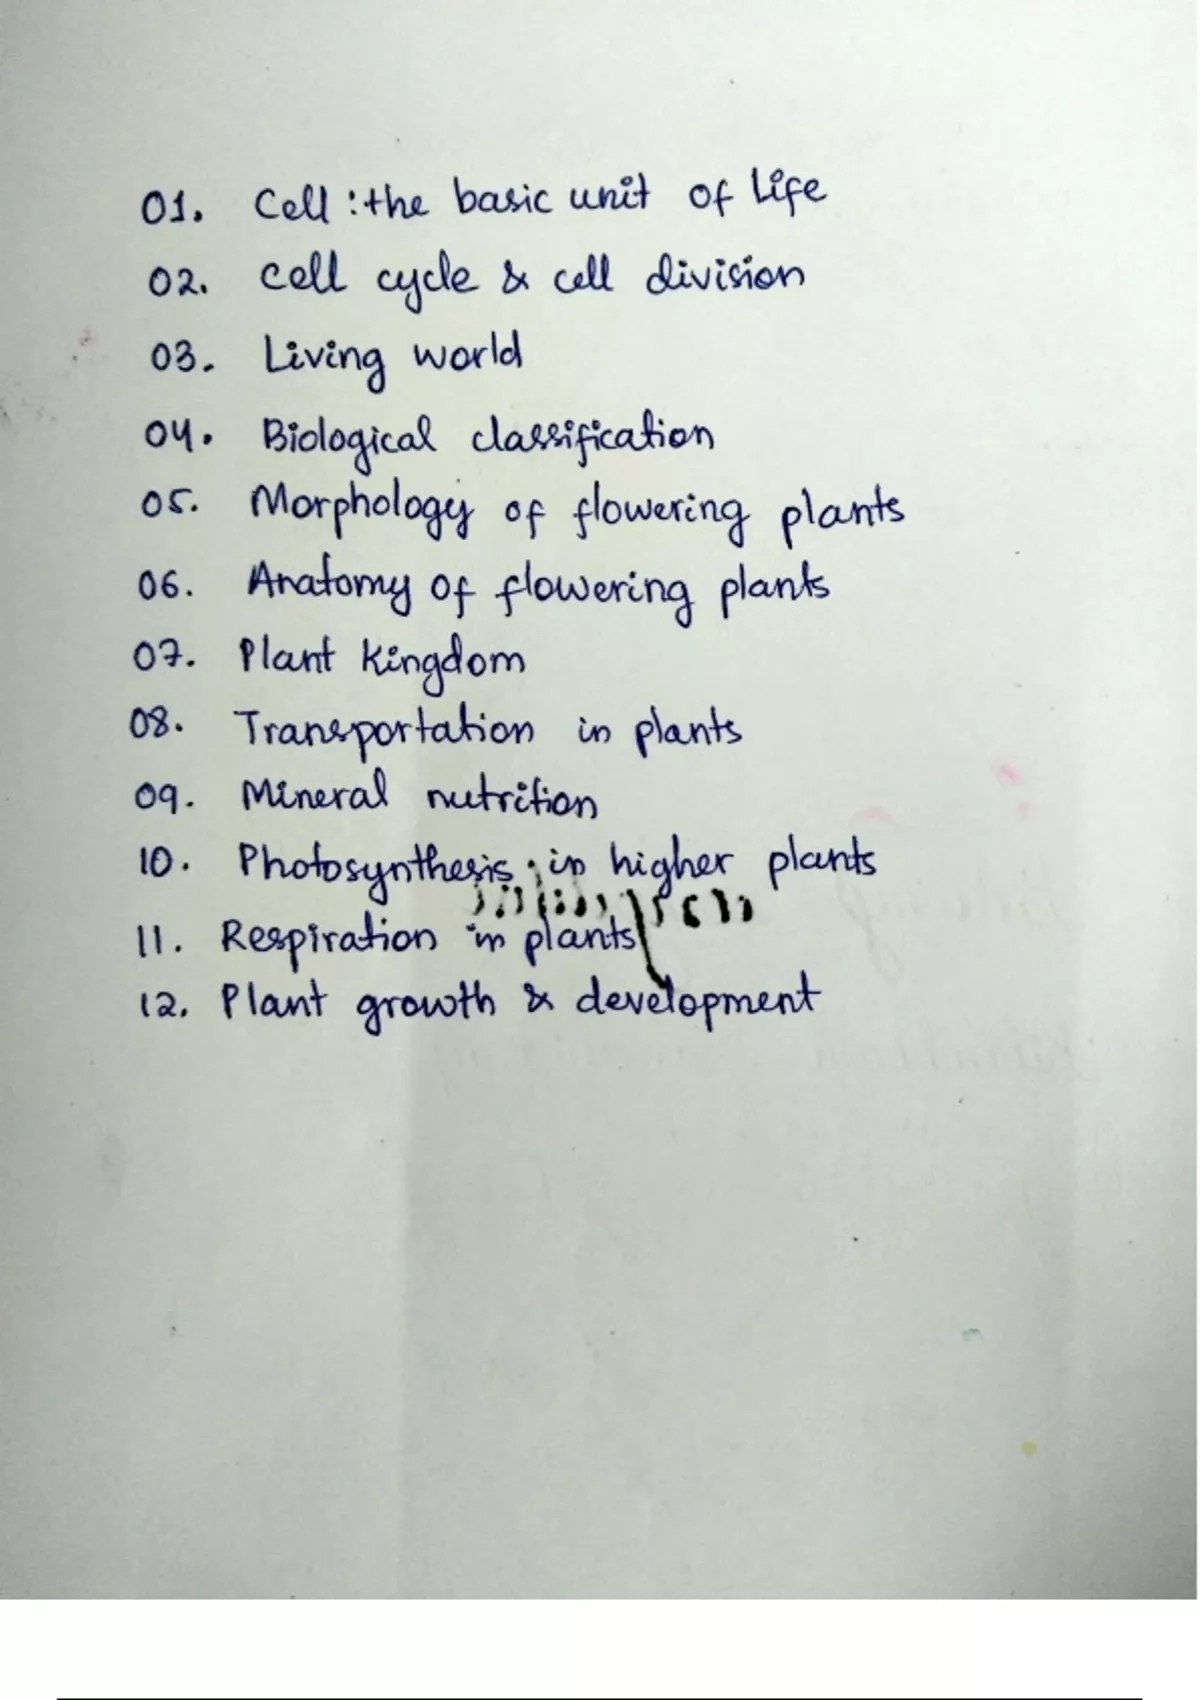 01. Cell : the basic unit of Life
02. Cell cycle & cell division
03. Living world
04. Biological classification
05. Morphology of flowering plants
06. Anatomy of flowering plants
07. Plant Kingdom
08. Transportation in plants
09. Mineral nutrition
10. Photosynthesis in higher plants
11. Respiration in plants
12. Plant growth & development